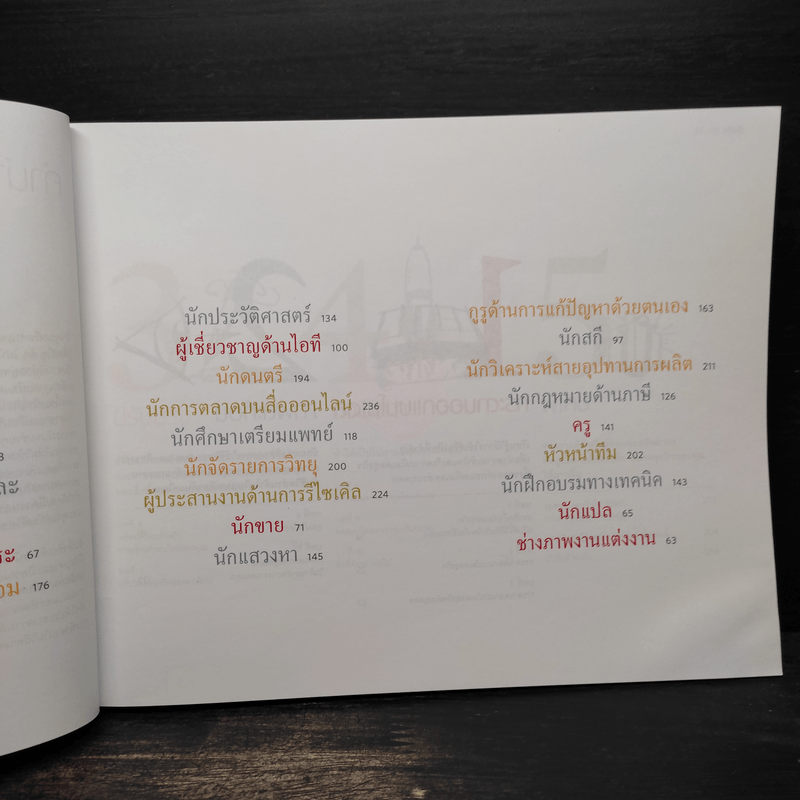 นักประวัติศาสตร์ 134
ผู้เชี่ยวชาญด้านไอที 100
นักดนตรี 194
นักการตลาดบนสื่อออนไลน์ 236
นักศึกษาเตรียมแพทย์ 118
นักจัดรายการวิทยุ 200
ผู้ประสานงานด้านการรีไซเคิล 224
นักขาย 71
นักแสวงหา 145
กูรูด้านการแก้ปัญหาด้วยตนเอง 163
นักสกี 97
นักวิเคราะห์สายอุปทานการผลิต 211
นักกฎหมายด้านภาษี 126
ครู 141
หัวหน้าทีม 202
นักฝึกอบรมทางเทคนิค 143
นักแปล 65
ช่างภาพงานแต่งงาน 63
67
176